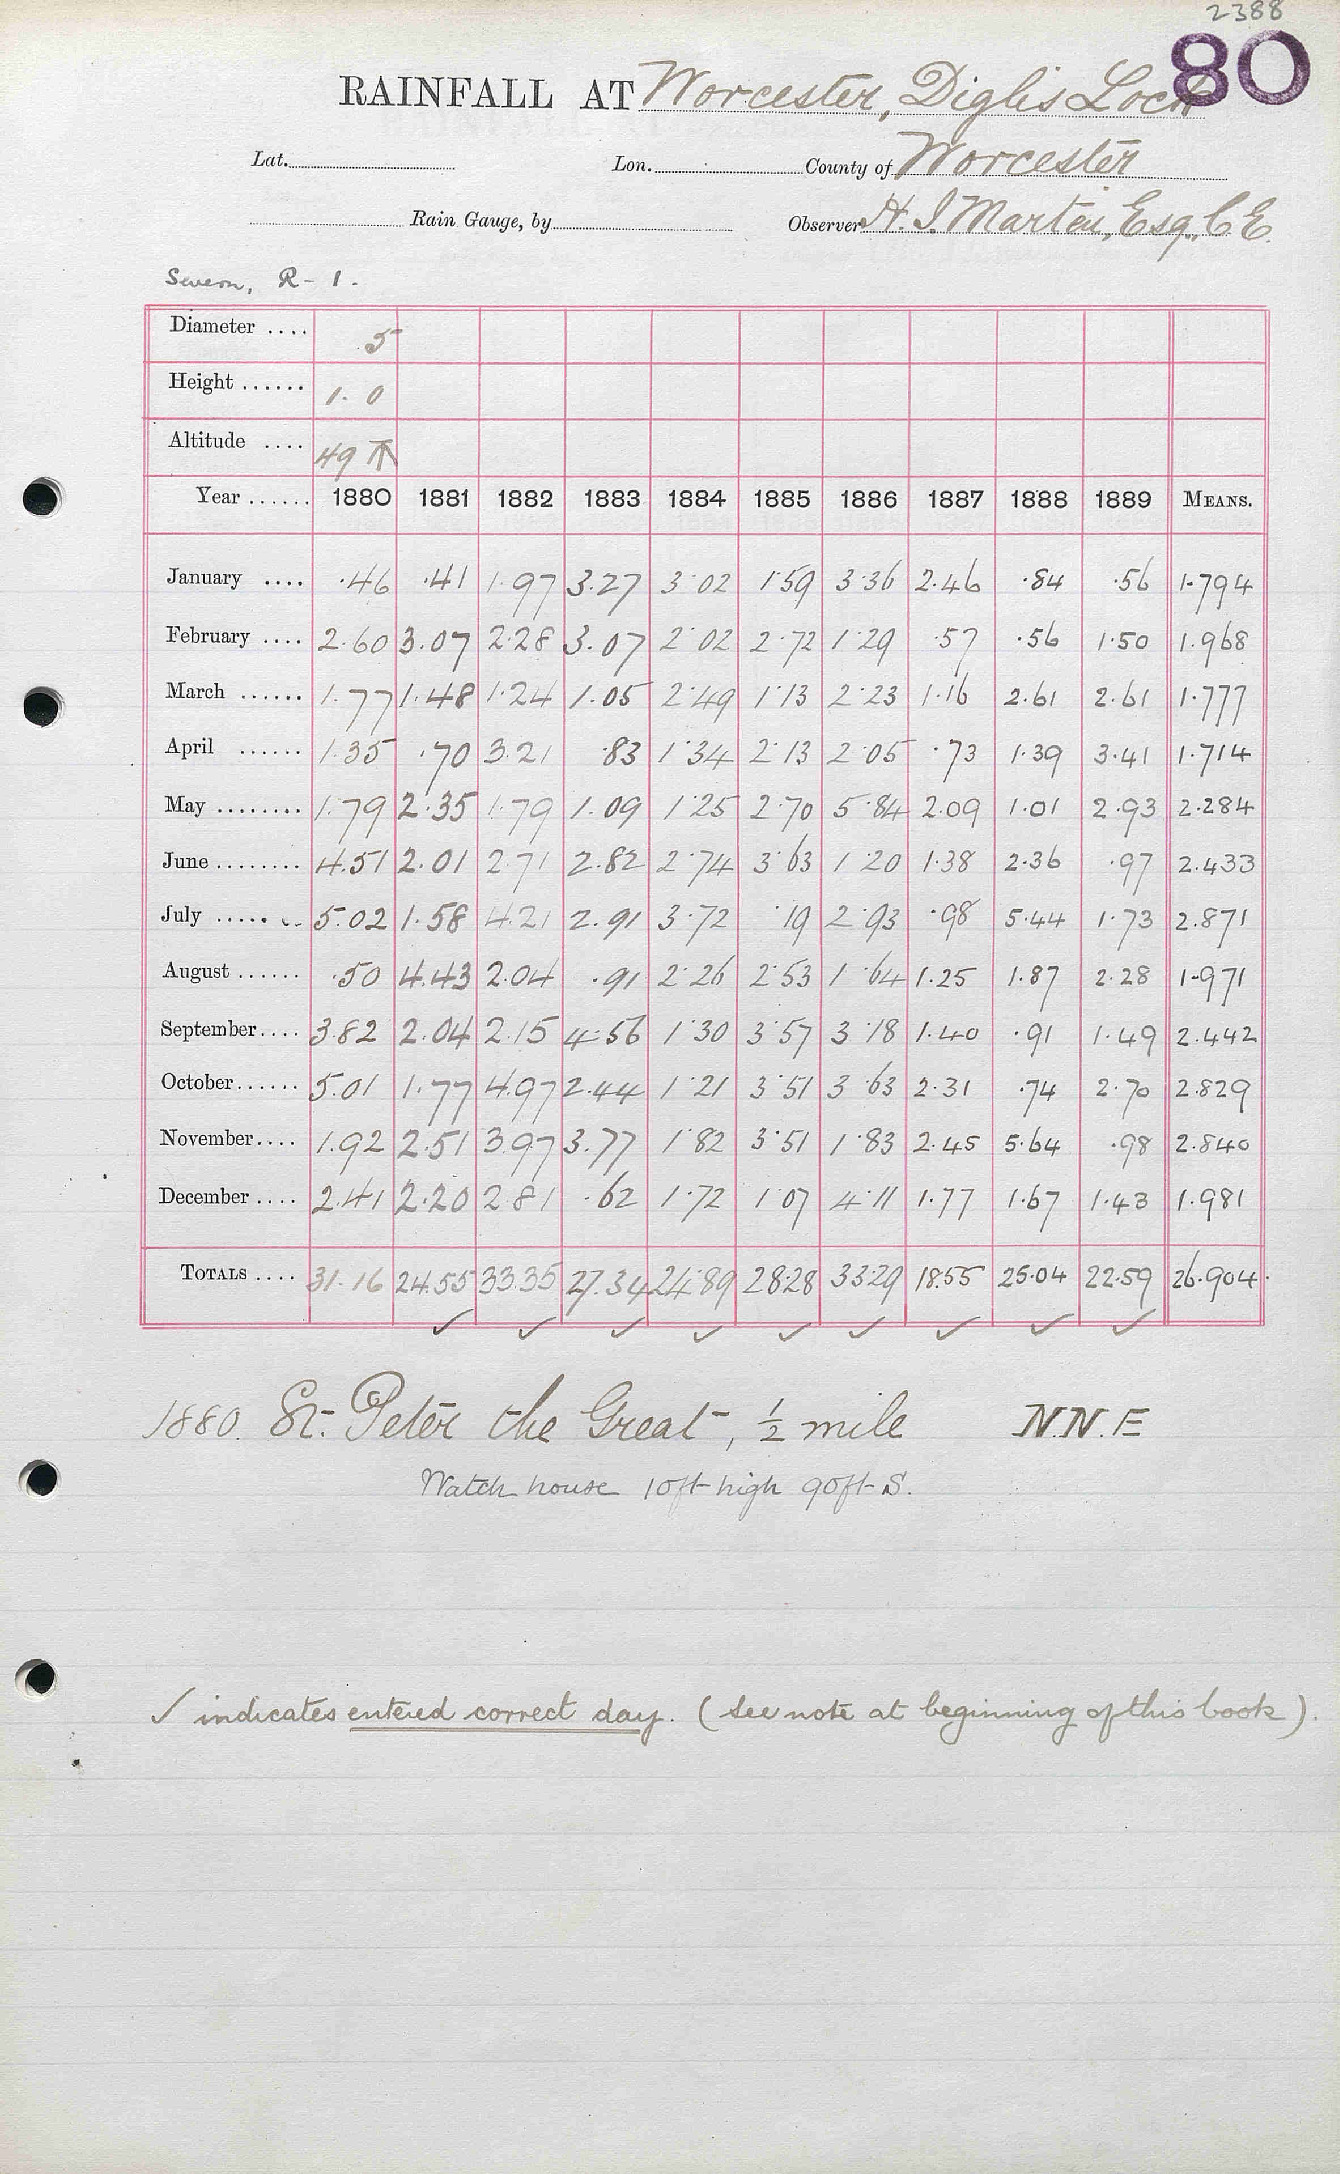 2388
80
RAINFALL AT Worcester, Diglis Lock
Lat. Lon. County of Worcester
Rain Gauge, by Observer H. J. Marten, Esq., C E.
Severn, R - 1.
Diameter .... 5
Height ...... 1. 0
Altitude .... 49
Year ...... 1880 1881 1882 1883 1884 1885 1886 1887 1888 1889 MEANS.
January .... .46 .41 1.97 3.27 3.02 1.59 3.36 2.46 .84 .56 1.794
February .... 2.60 3.07 2.28 3.07 2.02 2.72 1.29 .57 .56 1.50 1.968
March ...... 1.77 1.48 1.24 1.05 2.49 1.13 2.23 1.16 2.61 2.61 1.777
April ...... 1.35 .70 3.21 .83 1.34 2.13 2.05 .73 1.39 3.41 1.714
May ........ 1.79 2.35 1.79 1.09 1.25 2.70 5.84 2.09 1.01 2.93 2.284
June ........ 4.51 2.01 2.71 2.82 2.74 3.63 1.20 1.38 2.36 .97 2.433
July ........ 5.02 1.58 4.21 2.91 3.72 .19 2.93 .98 5.44 1.73 2.871
August ...... .50 4.43 2.04 .91 2.26 2.53 1.64 1.25 1.87 2.28 1.971
September.... 3.82 2.04 2.15 4.56 1.30 3.57 3.18 1.40 .91 1.49 2.442
October...... 5.01 1.77 4.97 2.44 1.21 3.51 3.63 2.31 .74 2.70 2.829
November.... 1.92 2.51 3.97 3.77 1.82 3.51 1.83 2.45 5.64 .98 2.840
December .... 2.41 2.20 2.81 .62 1.72 1.07 4.11 1.77 1.67 1.43 1.981
TOTALS .... 31.16 24.55 33.35 27.34 24.89 28.28 33.29 18.55 25.04 22.59 26.904
✓ ✓ ✓ ✓ ✓ ✓ ✓ ✓ ✓
1880. St. Peter the Great, ½ mile N.N.E
Watch house 10ft high 90ft S.
✓ indicates entered correct day. (See note at beginning of this book).